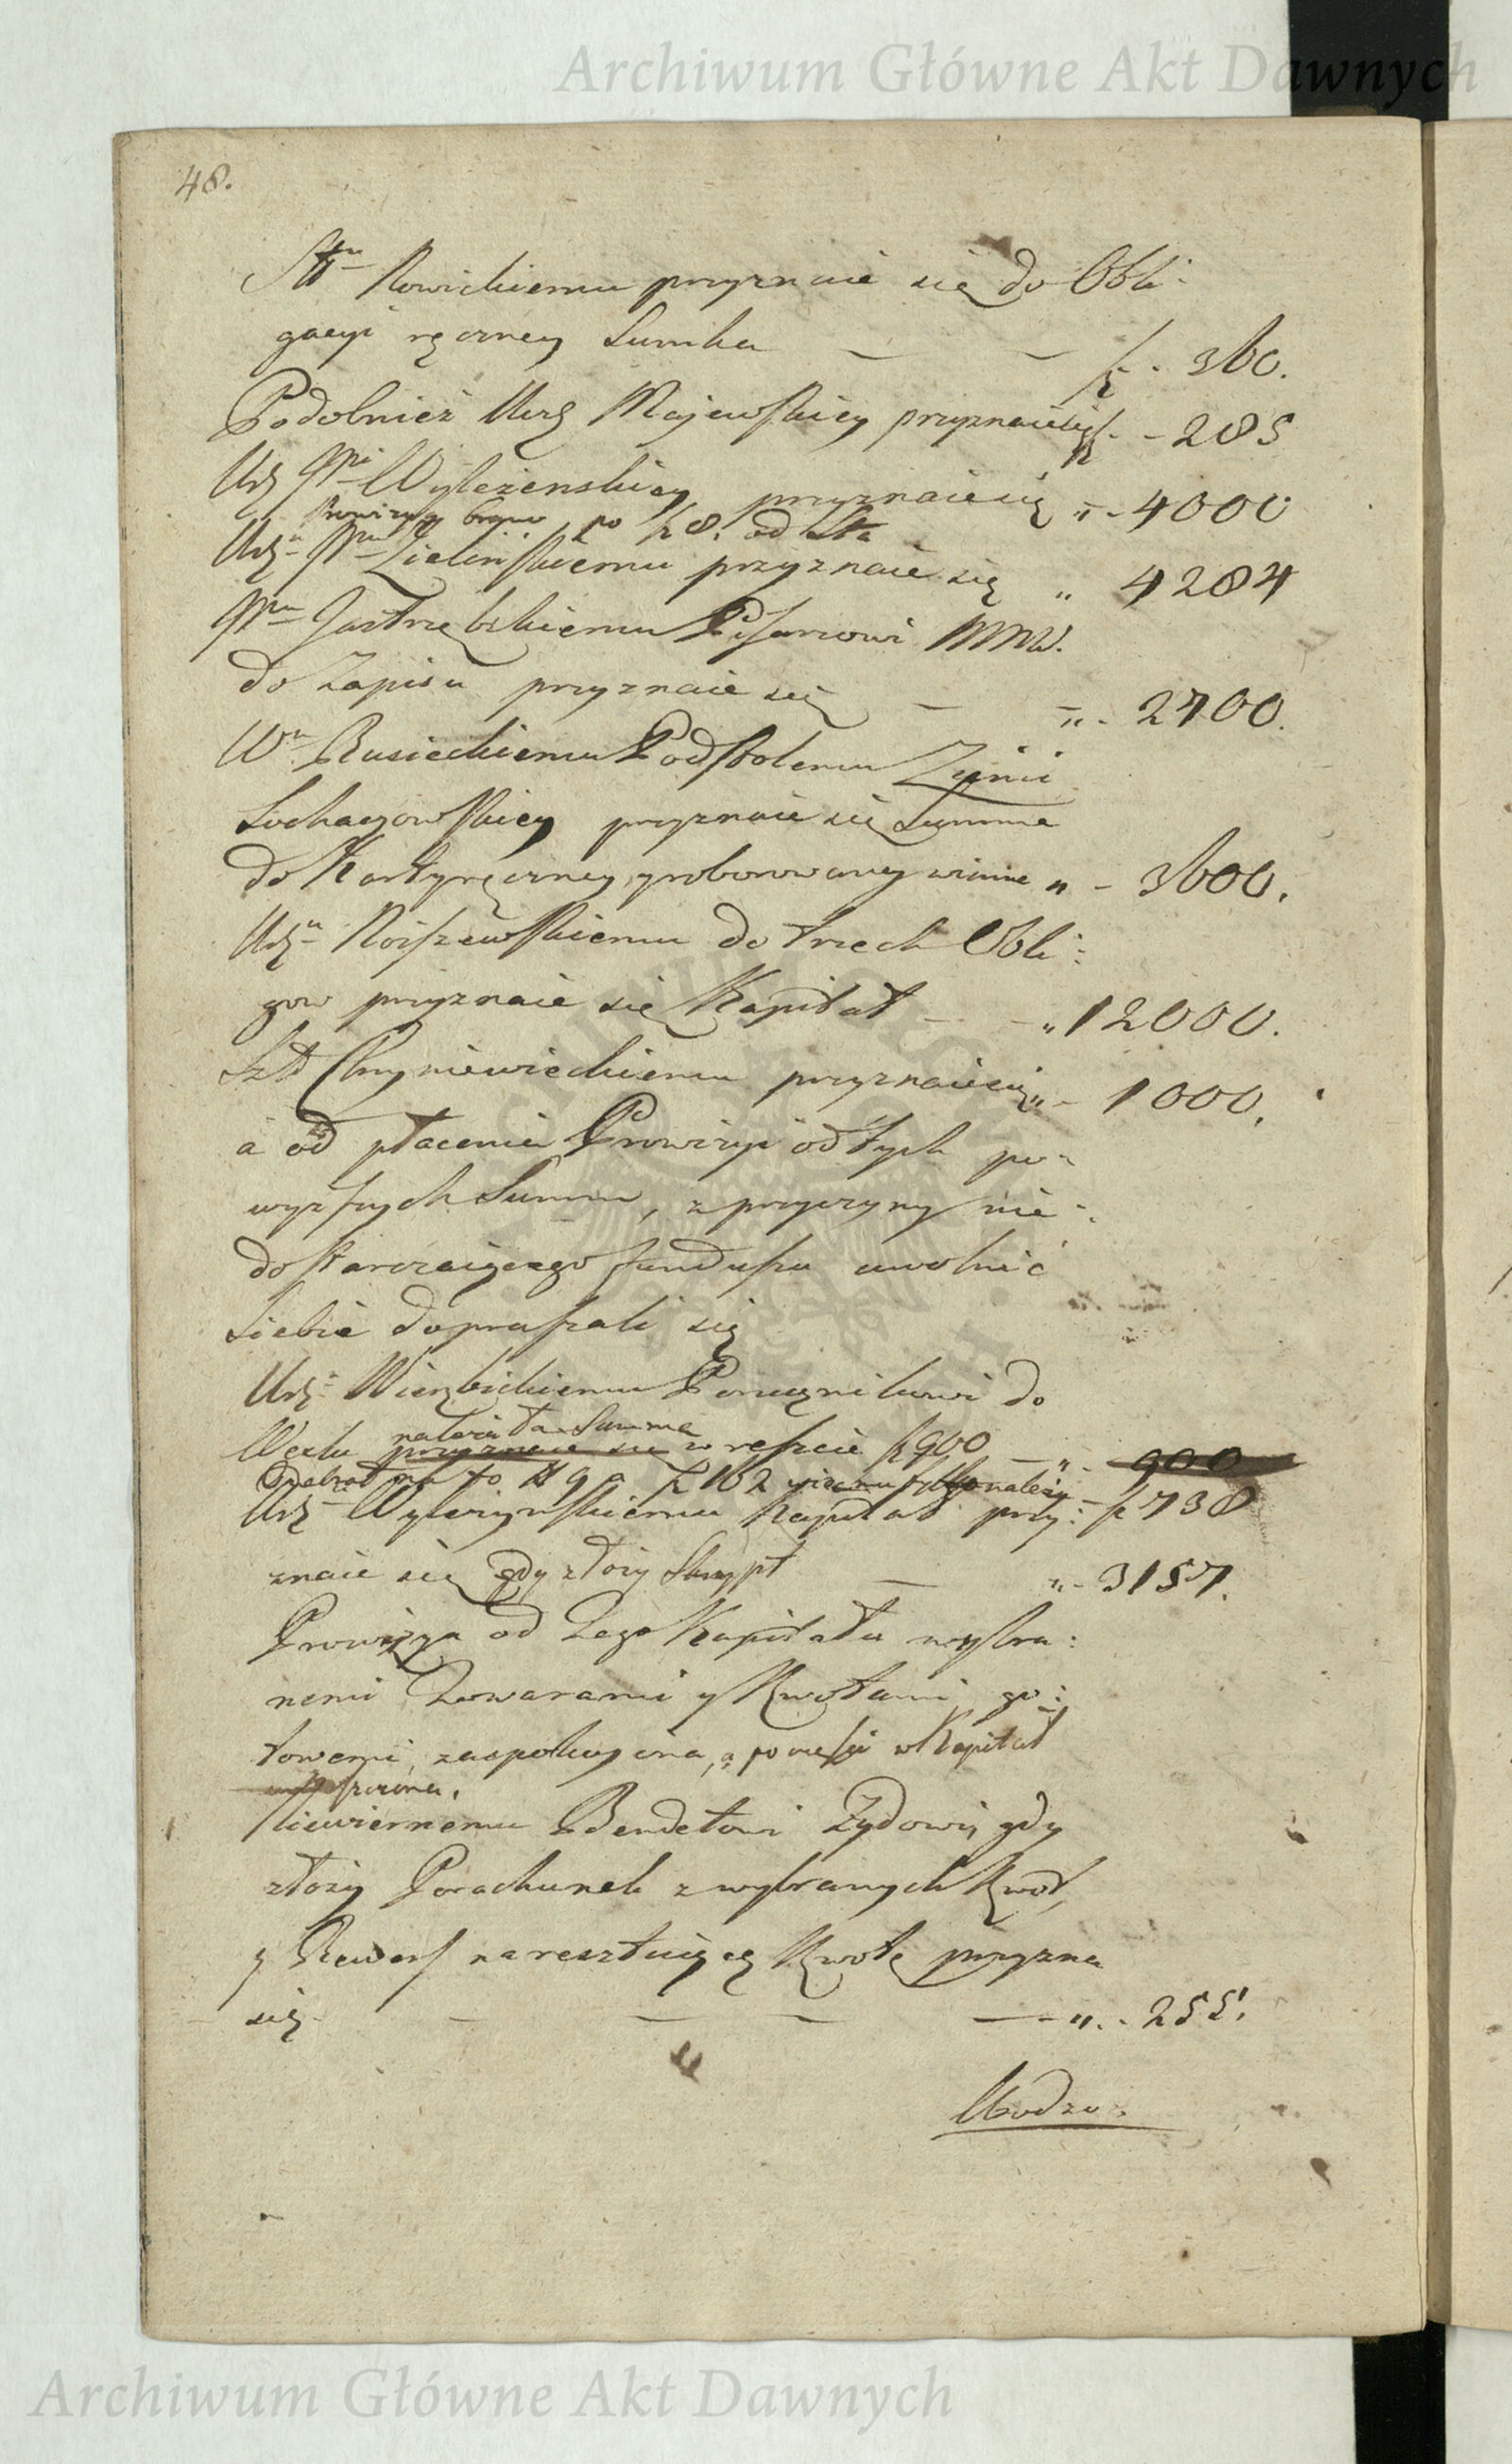 Archiwum Główne Akt Dawnych
48.
Nowickiemu przyznaie się do Obli-
gacyi ręczney Sumka — — f. 360.
Podobnież Urę Majewskiey przyznaie się f. - 285
Urę Wyleżenskiey przyznaie się „ - 4000
Prowizyą po f 8. od Sta
Urę Zielinskiemu przyznaie się „ 4284
Jastrzębskiemu Pisarzowi MNW.
do Zapisu przyznaie się — „ - 2700.
Wu Rusieckiemu Podstolemu Zymi
Sochaczowskiey przyznaie się Summa
do Karty ręczney, groborowaney winne „ - 3600.
Urę Roiszewskiemu do trzech Obli-
gow przyznaie się Kapitał — „ 12000.
Szl Chyniewieckiemu przyznaie się „ - 1000.
a od płacenia Prowizyi od tych po-
wyższych Summ, z przyczyny nie-
dostarczaiącego funduszu uwolnić
Siebie dopraszali się
Urę Wierzbickiemu Porucznikowi do
należała Summa
Wexlu przyznaie się w reszcie f 900 — „ - 900
Odebrał na to # 9 a f 162 należy - f 738
Urę Wyleżynskiemu Kapitał przy-
znaie się gdy złoży Skrypt — „ - 3157.
Prowizya od tego Kapitału wybra-
nemi Towarami y Kwotami go-
towemi, zaspokoiona, a po części w Kapitał
Niewiernemu Bendetowi Żydowi, gdy
złoży Porachunek z wybranych Kwot,
y Rewers na resztuiącą Kwotę przyzna
się — — — — „ - 255.
Archiwum Główne Akt Dawnych